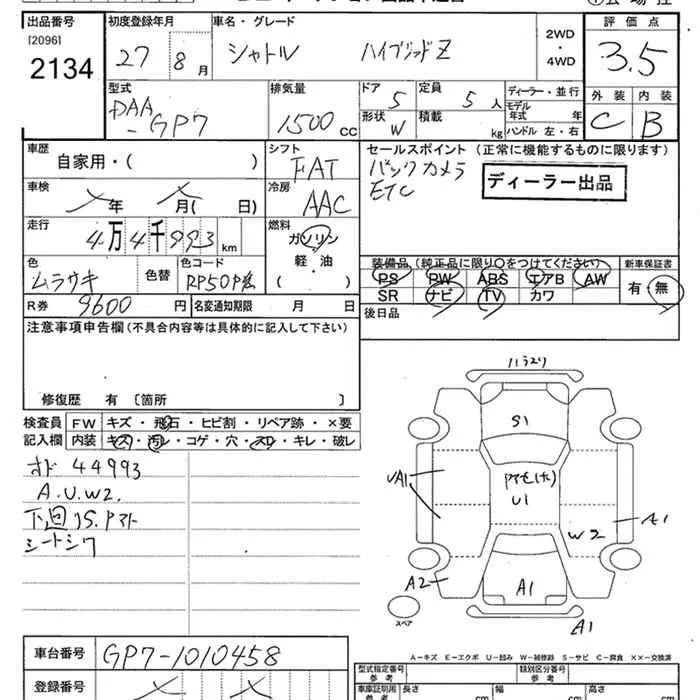 出品番号 初度登録年月 車名・グレード 2WD・4WD 評価点
[2096]
2134 27 8月 シャトル ハイブリッドZ 3.5
型式 排気量 ドア 5 定員 5人 ディーラー・並行 外装 内装
DAA-GP7 1500cc 形状 W 積載 kg モデル年式 年 C B
ハンドル 左・右
車歴 自家用・( ) シフト FAT セールスポイント (正常に機能するものに限ります)
バックカメラ
ETC
ディーラー出品
車検 年 月( 日) 冷房 AAC
走行 4万4千993km 燃料 ガソリン
軽・油
( )
色 ムラサキ 色替 色コード RP50P
装備品 (純正品に限り○をつけてください) 新車保証書
PS PW ABS エアB AW 有・無
SR ナビ TV カワ
R券 9600円 名変通知期限 月 日 後日品
注意事項申告欄(不具合内容等は具体的に記入して下さい)
修復歴 有 〔箇所 〕
検査員記入欄 FW キズ・飛石・ヒビ割・リペア跡・×要
内装 キズ・汚レ・コゲ・穴・スレ・キレ・破レ
オド 44993
A.U.W2.
下回 S.
シート
S1
U1
UA1
W2
A1
A2
A1
A1
スペア
A-キズ E-エクボ U-凹み W-補修跡 S-サビ C-腐食 ××-交換済
車台番号 GP7-1010458
登録番号
型式指定番号 参考 類別区分番号 参考
車庫証明用 参考 長さ cm 幅 cm 高さ cm